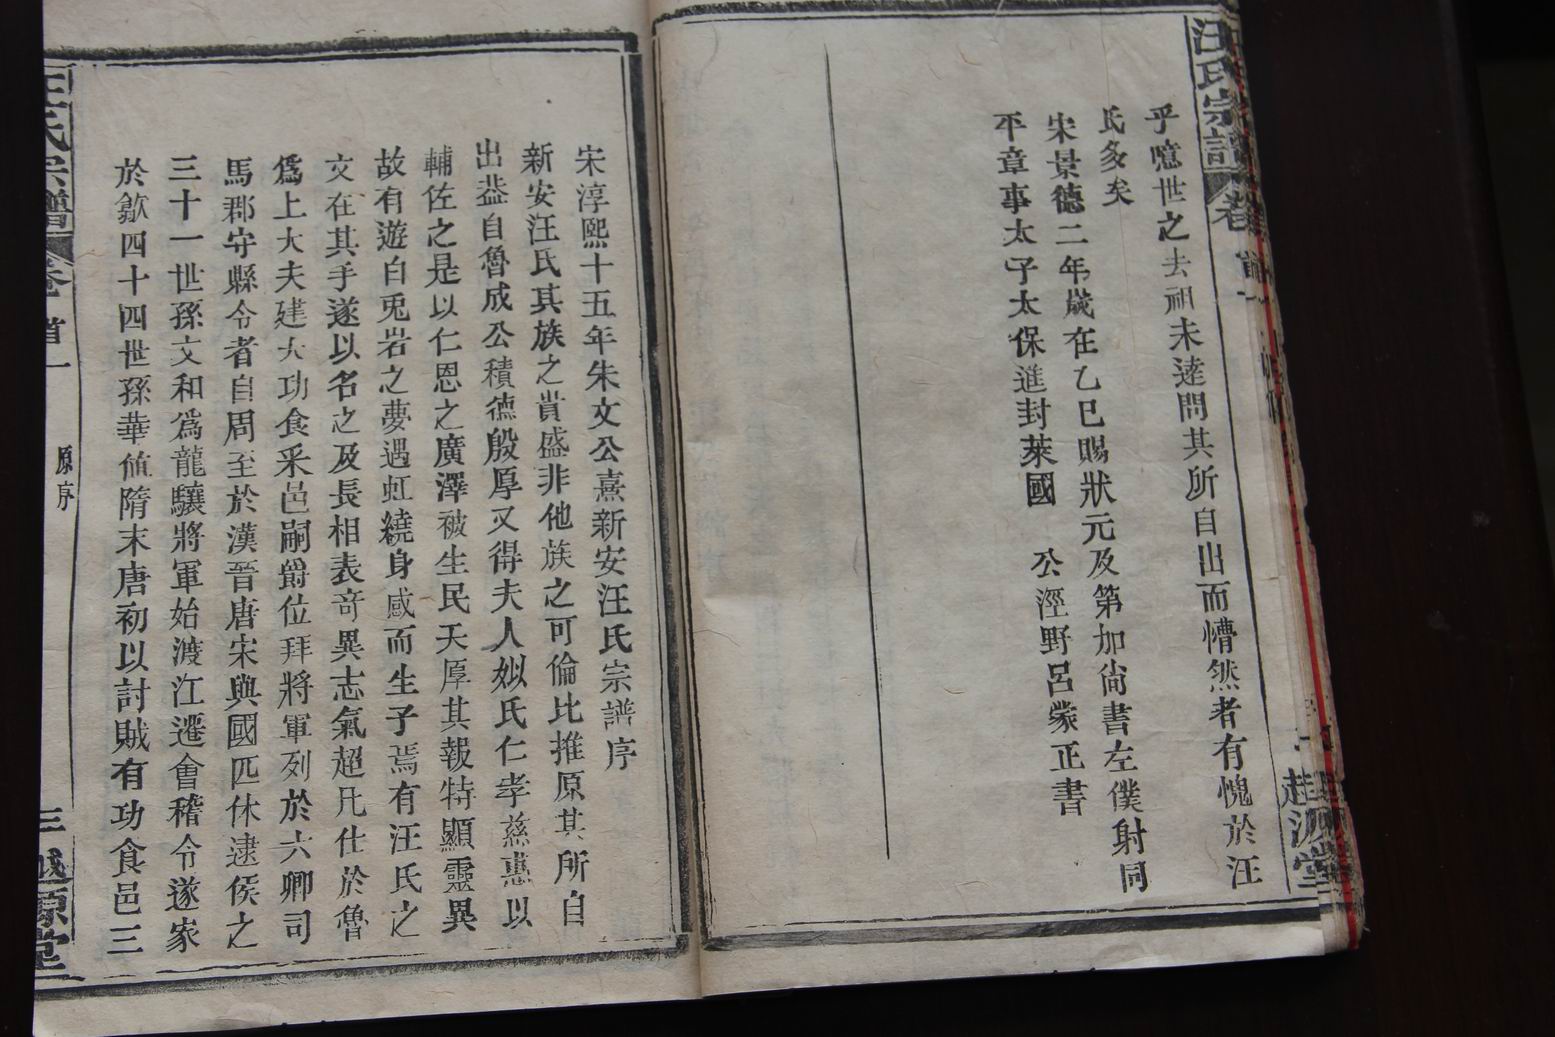 汪氏宗譜 卷首一
越源堂
乎噫世之去祖未逺問其所自出而懵然者有愧於汪
氏多矣
宋景德二年歲在乙巳賜狀元及第加尙書左僕射同
平章事太子太保進封萊國 公涇野呂蒙正書
宋淳熙十五年朱文公熹新安汪氏宗譜序
新安汪氏其族之貴盛非他族之可倫比推原其所自
出葢自魯成公積德殷厚又得夫人姒氏仁孝慈惠以
輔佐之是以仁恩之廣澤被生民天厚其報特顯靈異
故有遊白兎岩之夢遇虹繞身感而生子焉有汪氏之
文在其手遂以名之及長相表竒異志氣超凡仕於魯
爲上大夫建大功食采邑嗣爵位拜將軍列於六卿司
馬郡守縣令者自周至於漢晉唐宋與國匹休逮侯之
三十一世孫文和爲龍驤將軍始渡江遷會稽令遂家
於歙四十四世孫華值隋末唐初以討賊有功食邑三
汪氏宗譜 卷首一
原序
三 越源堂